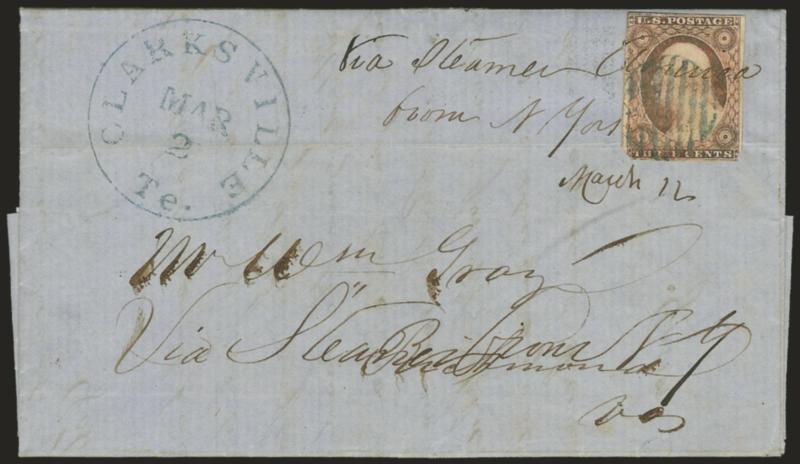 CLARKSVILLE
MAR
2
Te.
U.S. POSTAGE
THREE CENTS
Via Steamer
from N York
March 12
Mr Wm Gray
Via Steamer from N Y
Richmond
Va